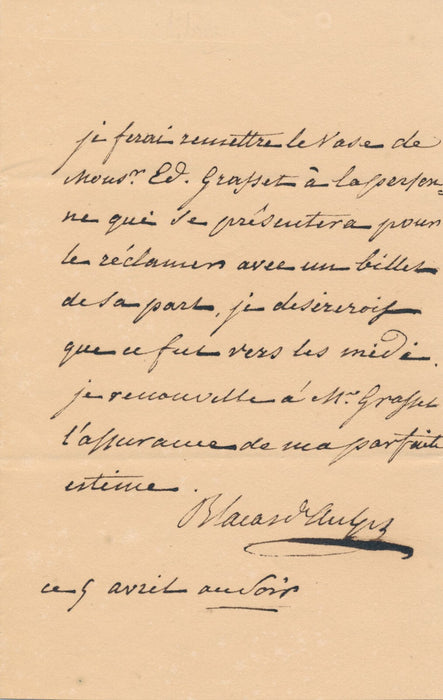 je ferai remettre le vase de
Mons.r Ed. Grasset à la person=
ne qui se présentera pour
le réclamer avec un billet
de sa part, je desirerois
que ce fut vers les midi.
je renouvelle à Mr. Grasset
l'assurance de ma parfaite
estime.
Blacas d'Aulps
ce 5 avril au soir